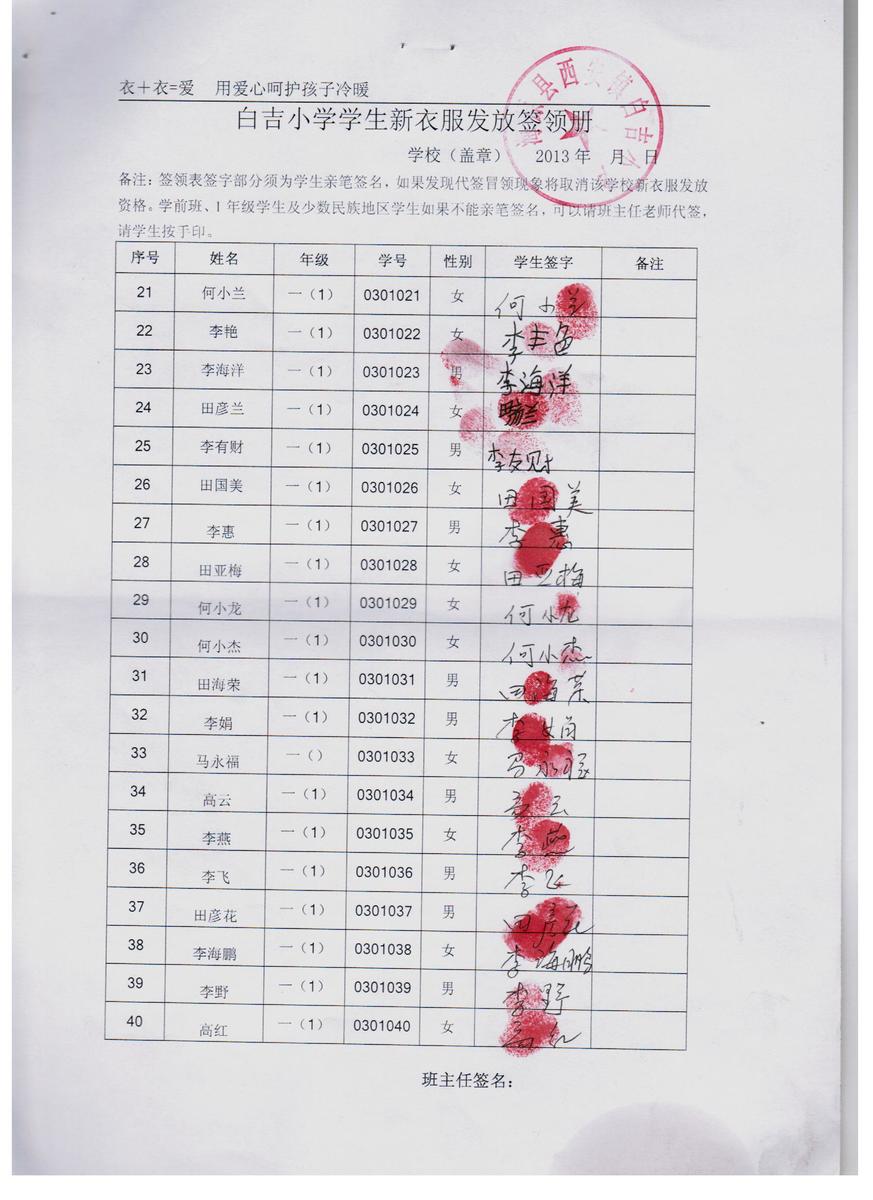 衣＋衣=爱　用爱心呵护孩子冷暖
白吉小学学生新衣服发放签领册
县西安镇白吉小
学校（盖章）　2013 年　月　日
备注：签领表签字部分须为学生亲笔签名，如果发现代签冒领现象将取消该学校新衣服发放
资格。学前班、1 年级学生及少数民族地区学生如果不能亲笔签名，可以请班主任老师代签，
请学生按手印。
序号 姓名 年级 学号 性别 学生签字 备注
21 何小兰 一（1） 0301021 女 何小兰
22 李艳 一（1） 0301022 女 李艳
23 李海洋 一（1） 0301023 男 李海洋
24 田彦兰 一（1） 0301024 女
25 李有财 一（1） 0301025 男 李友财
26 田国美 一（1） 0301026 女 田国美
27 李惠 一（1） 0301027 男 李惠
28 田亚梅 一（1） 0301028 女 田亚梅
29 何小龙 一（1） 0301029 女 何小龙
30 何小杰 一（1） 0301030 女 何小杰
31 田海荣 一（1） 0301031 男 田海荣
32 李娟 一（1） 0301032 男 李娟
33 马永福 一（） 0301033 女 马永福
34 高云 一（1） 0301034 男 高云
35 李燕 一（1） 0301035 女 李燕
36 李飞 一（1） 0301036 男 李飞
37 田彦花 一（1） 0301037 男 田彦花
38 李海鹏 一（1） 0301038 女 李海鹏
39 李野 一（1） 0301039 男 李野
40 高红 一（1） 0301040 女 高红
班主任签名：